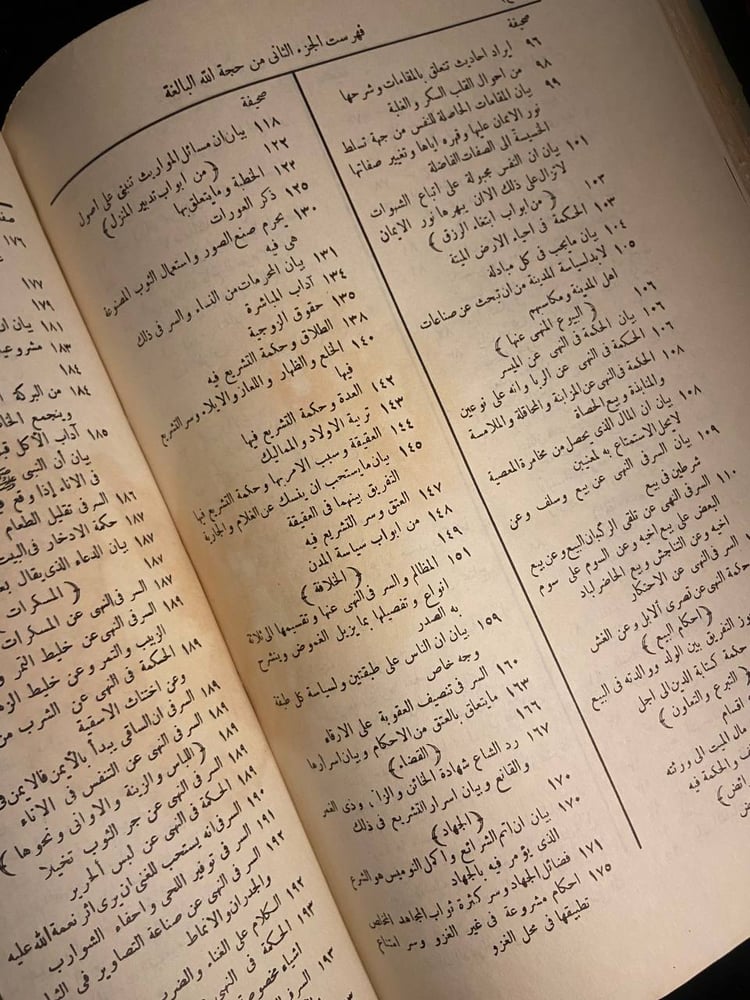 فهرست الجزء الثانى من حجة الله البالغة
صحيفة
٩٦ ايراد احاديث تتعلق بالمقامات وشرحها
٩٨ من احوال القلب السكر والغلبة
٩٩ بيان المقامات الحاصلة للنفس من جهة تسلط
نور الايمان عليها وقهره اياها وتغيير صفاتها
الخسيسة الى الصفات الفاضلة
١٠١ بيان ان النفس مجبولة على اتباع الشهوات
لاتزال على ذلك الا ان يبهرها نور الايمان
١٠٣ ﴿ من ابواب ابتغاء الرزق ﴾
١٠٣ الحكمة فى احياء الارض الميتة
١٠٤ بيان مايجب فى كل مبادلة
١٠٥ لابد لسياسة المدينة من ان تبحث عن صناعات
اهل المدينة ومكاسبهم
١٠٦ ﴿ البيوع المنهى عنها ﴾
١٠٦ بيان الحكمة فى النهى عن الميسر
١٠٦ الحكمة فى النهى عن الربا وانه على نوعين
١٠٨ الحكمة فى النهى عن المزابنة والمحاقلة والملامسة
والمنابذة وبيع الحصاة
١٠٨ بيان ان المال الذى يحصل من مخامرة المعصية
لايحل الاستمتاع به لمعنيين
١٠٩ بيان السر فى النهى عن بيع وسلف وعن
شرطين فى بيع
١١٠ السر فى النهى عن تلقى الركبان للبيع وعن بيع
البعض على بيع اخيه وعن السوم على سوم
اخيه وعن التناجش وبيع الحاضر لباد
السر فى النهى عن الاحتكار
حكمة النهى عن تصرى الابل وعن الغش
﴿ احكام البيع ﴾
التفريق بين الولد ووالدته فى البيع
حكمة كتابة الدين الى اجل
﴿ التبرع والتعاون ﴾
اقسام
مال الميت الى ورثته
والحكمة فيه
صحيفة
١١٨ بيان ان مسائل المواريث تنبنى على اصول
١٢٢ ﴿ من ابواب تدبير المنزل ﴾
١٢٣ الخطبة ومايتعلق بها
١٢٥ ذكر العورات
١٣٠ يحرم صنع الصور واستعمال الثوب المصنوعة
هى فيه
١٣١ بيان المحرمات من النساء والسر فى ذلك
١٣٤ آداب المباشرة
١٣٥ حقوق الزوجية
١٣٨ الطلاق وحكمة التشريع فيه
١٤٠ الخلع والظهار واللعان والايلاء وسر التشريع
فيها
١٤٢ العدة وحكمة التشريع فيها
١٤٣ تربية الاولاد والمماليك
١٤٤ العقيقة وسبب الامر بها وحكمة التشريع فيها
١٤٥ بيان مايستحب ان ينسك عن الغلام والجارية
التفريق بينهما فى العقيقة
١٤٧ العتق وسر التشريع فيه
١٤٨ من ابواب سياسة المدن
١٤٩ ﴿ الخلافة ﴾
١٥١ المظالم والسر فى النهى عنها وتقسيمها الى ثلاثة
انواع وتفصيلها بمايزيل الغموض وينشرح
به الصدر
١٥٩ بيان ان الناس على طبقتين ولسياسة كل طبقة
وجه خاص
١٦٠ السر فى تنصيف العقوبة على الارقاء
١٦٣ مايتعلق بالعتق من الاحكام وبيان اسرارها
١٦٦ ﴿ القضاء ﴾
١٦٧ رد الشارع شهادة الخائن والزانى وذى الغمر
والقانع وبيان اسرار التشريع فى ذلك
١٧٠ ﴿ الجهاد ﴾
١٧٠ بيان ان اتم الشرائع واكمل النواميس هو الشرع
الذى يؤمر فيه بالجهاد
١٧١ فضائل الجهاد وسر كثرة ثواب المجاهد المخلص
١٧٥ احكام مشروعة فى غير الغزو وسر امتناع
تطبيقها فى محل الغزو
١٧٦
١٧٧
١٧٩
١٨١ بيان
١٨٣ مشروعية
١٨٤
١٨٤ من البركة
ويتجمع
١٨٥ آداب الاكل
بيان أن النبى ﷺ
فى الاناء إذا وقع
١٨٦ السر فى تقليل الطعام
١٨٧ حكة الادخار فى البيت
١٨٧ بيان الدعاء الذى يقال
١٨٧ ﴿ المسكرات
١٨٧ السر فى النهى عن المسكرات
١٨٩ السر فى النهى عن خليط التمر
الزبيب والتمر وعن خليط
١٨٩ الحكمة فى النهى عن الشرب من
وعن اختناث الاسقية
١٨٩ السر فى ان الساقى يبدأ بالأيمن فالايمن
١٨٩ السر فى النهى عن التنفس فى الاناء
١٨٩ ﴿ اللباس والزينة والاوانى ونحوها ﴾
١٨٩ السر فى النهى عن جر الثوب تخيلا
١٨٩ الحكمة فى النهى عن لبس الحرير
١٩٠ السر فى انه يستحب للغنى ان يرى اثر نعمة الله عليه
١٩١ السر فى توفير اللحى واحفاء الشوارب
١٩٢ السر فى النهى عن صناعة التصاوير فى
والجدران والانماط
١٩٢ الكلام على الغناء والضرب
١٩٣ الحكمة فى النهى
اشياء مخصوصة
١٩٣